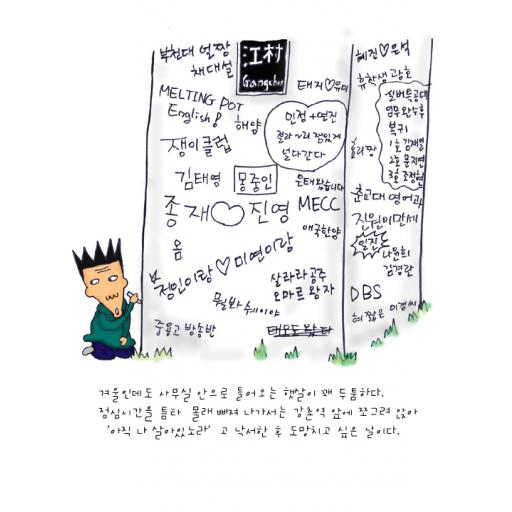 부천대 얼짱
채대설
江村
Gangchon
MELTING POT
English!
해양
쟁이클럽
김태영
몽중인
종재♡진영
MECC
옴
정인이랑♡미연이랑
중용고 방송반
민정+명진
놀다간다
은태 왔습니다
애국한양
살라라공주
오마르 왕자
뭘봐 쉐이야
태오도 왔다
혜진♡은석
휴학생 광호
실버특공대
임무완수후
복귀
1호 김재일
2호 문지연
3호 조정현
춘교대 영어과
진원이만세
일진
나윤희
김경란
DBS
겨울인데도 사무실 안으로 들어오는 햇살이 꽤 두툼하다.
점심시간을 틈타 몰래 빠져 나가서는 강촌역 앞에 쪼그려 앉아
'아직 나 살아있노라' 고 낙서한 후 도망치고 싶은 날이다.